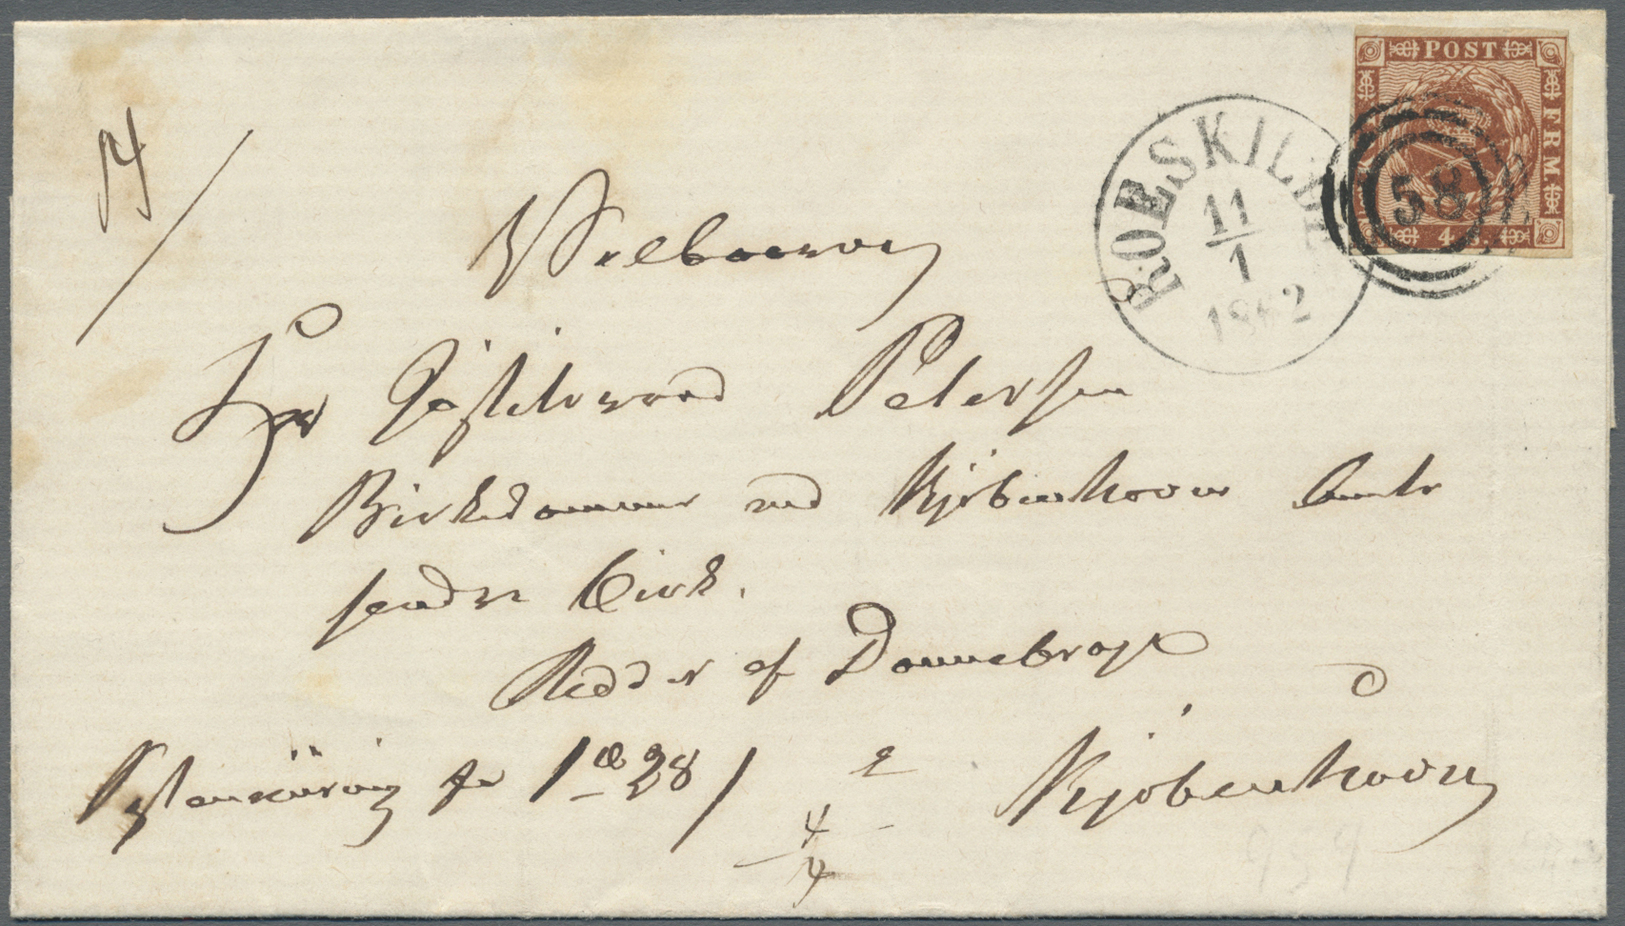 POST
FRM.
4 S.
58
ROESKILDE
11
1
1862
Velbaaren
Hr Justitsraad Petersen
Birkedommer ved Kjöbenhavns Amts
søndre Birk.
Ridder af Dannebroge
Kjöbenhavn
28
4